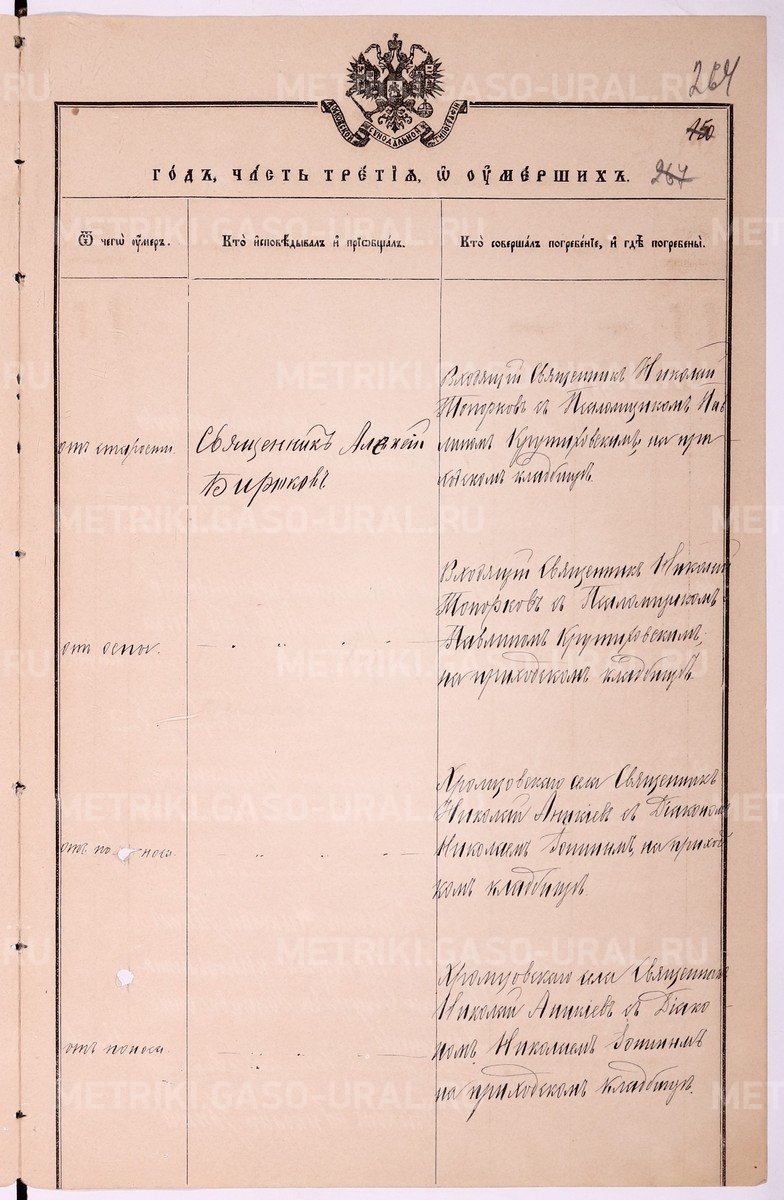 264
МОСКОВСКОЙ СѴНОДАЛЬНОЙ ТИПОГРАФІИ
150
ГОДЪ, ЧАСТЬ ТРЕТІЯ, Ѿ ОУМЕРШИХЪ. 267
Ѿ чегѡ оумеръ.
Кто исповѣдывалъ и пріѡбщалъ.
Кто совершалъ погребеніе, и гдѣ погребены.
отъ старости
Священникъ Алексѣй
Бирюковъ
Входящій Священникъ Николай
Топорковъ съ Псаломщикомъ Пав
линомъ Крутиховскимъ, на при
ходскомъ кладбищѣ.
отъ оспы.
- " " " -
Входящій Священникъ Николай
Топорковъ съ Псаломщикомъ
Павлиномъ Крутиховскимъ,
на приходскомъ кладбищѣ
отъ по носа
" " " -
Хромцовскаго села Священникъ
Николай Аникіевъ съ Діакономъ
Николаемъ на приход
комъ кладбищѣ.
отъ поноса
- " " " -
Хромцовскаго села Священникъ
Николай Аникіевъ съ Діако
номъ Николаемъ
на приходскомъ кладбищѣ.
METRIKI.GASO-URAL.RU